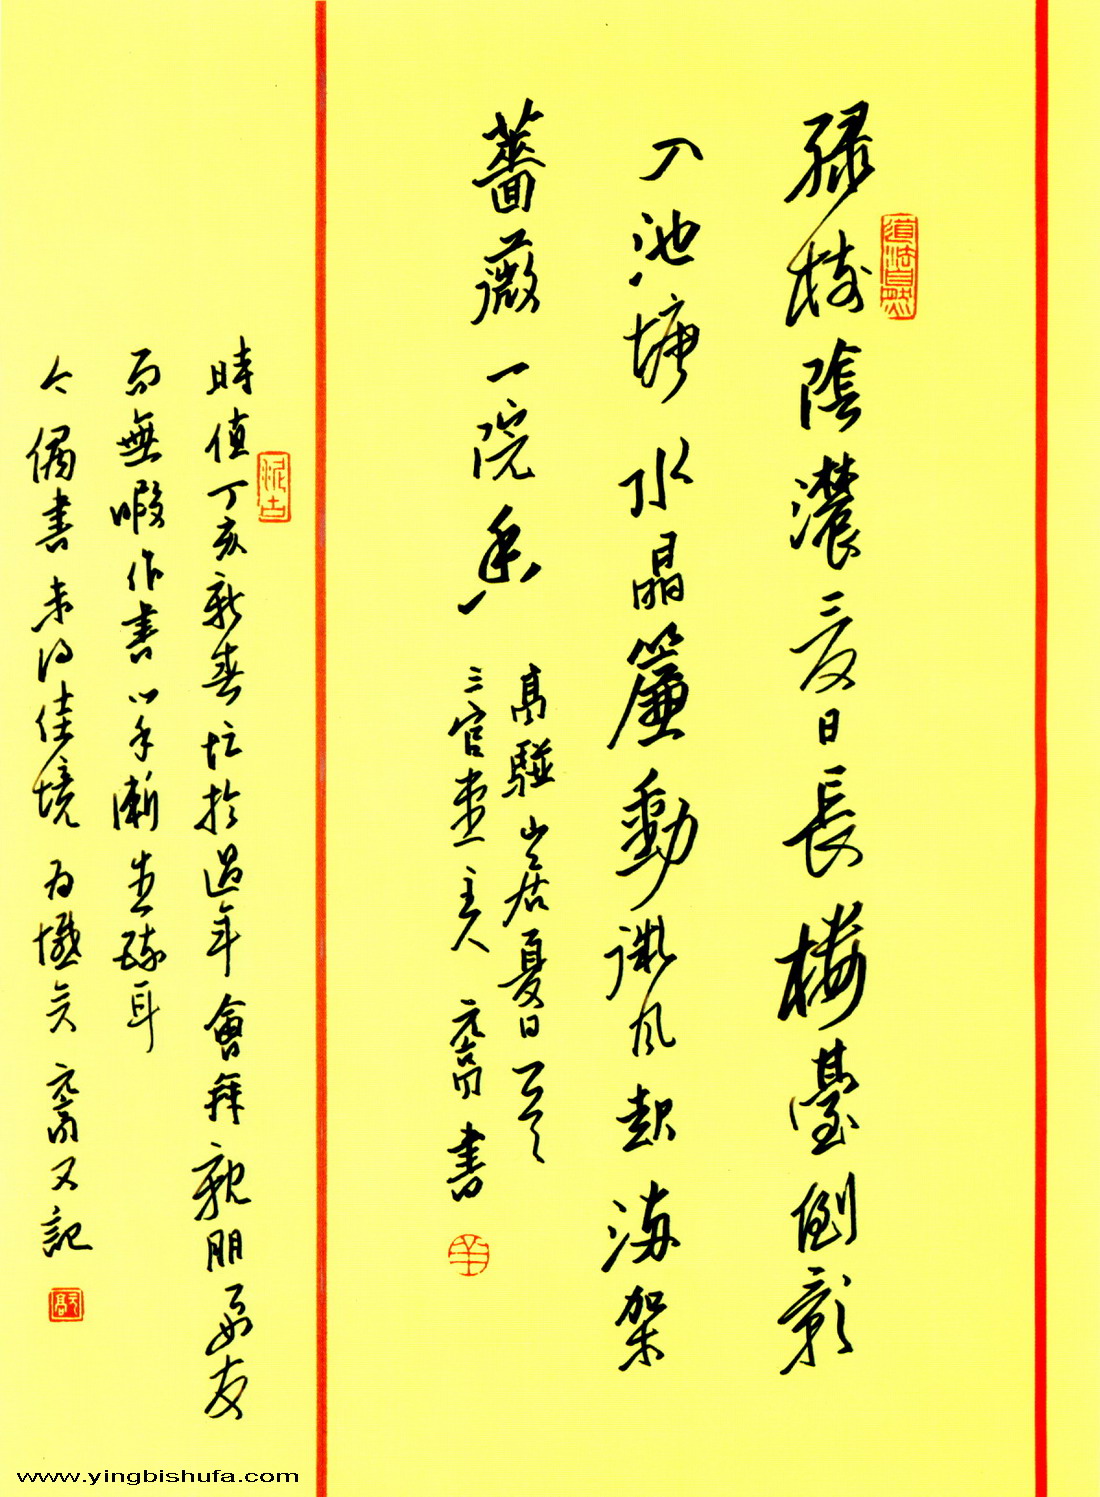 緑樹陰濃夏日長樓臺倒影
入池塘水晶簾動微風起滿架
薔薇一院香
高駢山居夏日一首
三官堂主人 書
道法自然
時值丁亥新春忙於過年會拜親朋好友
而無暇作書以手漸生疏耳
今偶書未得佳境為憾矣 又記
www.yingbishufa.com